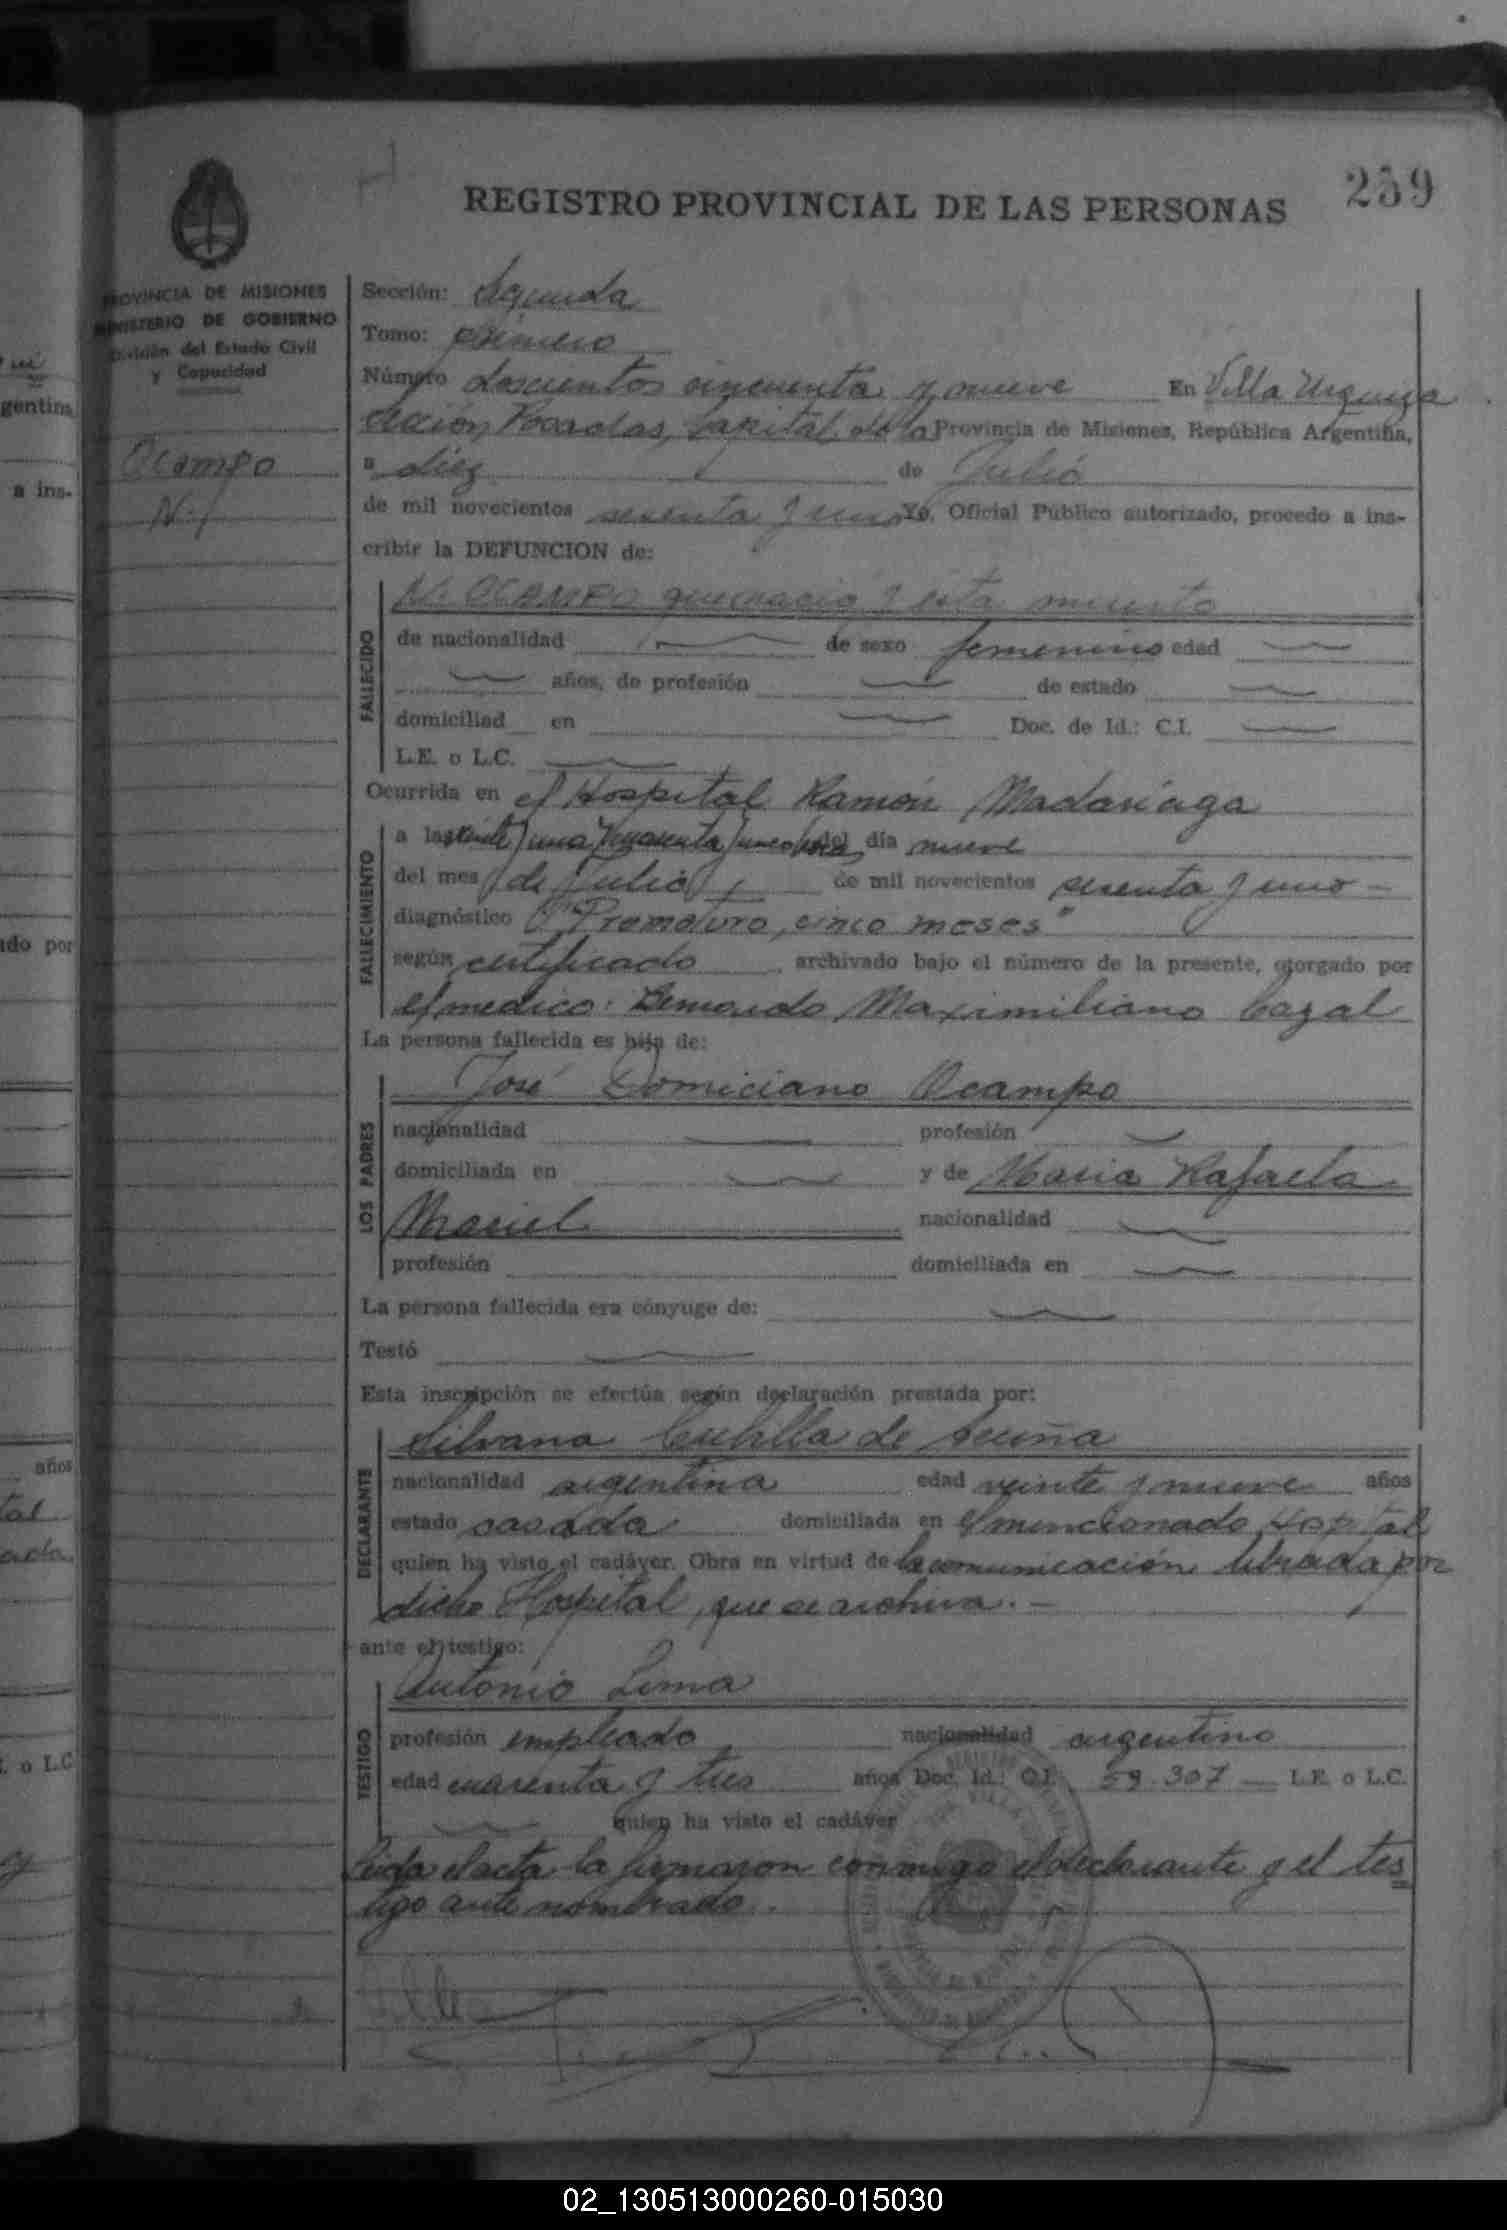 259
REGISTRO PROVINCIAL DE LAS PERSONAS
PROVINCIA DE MISIONES
MINISTERIO DE GOBIERNO
División del Estado Civil
y Capacidad
Ocampo
N.
Sección: Segunda
Tomo: primero
Número doscientos cincuenta y nueve En Villa Urquiza
sección Posadas, Capital de la Provincia de Misiones, República Argentina,
a diez de Julio
de mil novecientos sesenta y uno Yo, Oficial Público autorizado, procedo a ins-
cribir la DEFUNCION de:
N. OCAMPO que nació y está muerta
FALLECIDO
de nacionalidad de sexo femenino edad
años, de profesión de estado
domiciliad en Doc. de Id.: C.I.
L.E. o L.C.
Ocurrida en el Hospital Ramón Madariaga
FALLECIMIENTO
a las veinte y una y cuarenta y cinco horas del día nueve
del mes de Julio de mil novecientos sesenta y uno -
diagnóstico "Prematuro, cinco meses"
según certificado archivado bajo el número de la presente, otorgado por
el medico: Bernardo Maximiliano Cazal
La persona fallecida es hija de:
José Domiciano Ocampo
LOS PADRES
nacionalidad profesión
domiciliada en y de Maria Rafaela
Maciel nacionalidad
profesión domiciliada en
La persona fallecida era cónyuge de:
Testó
Esta inscripción se efectúa según declaración prestada por:
Silvana Cubilla de Acuña
DECLARANTE
nacionalidad argentina edad veinte y nueve años
estado casada domiciliada en el mencionado Hospital
quien ha visto el cadáver. Obra en virtud de la comunicación librada por
dicho Hospital, que se archiva. -
ante el testigo:
Antonio Lima
TESTIGO
profesión empleado nacionalidad argentino
edad cuarenta y tres años Doc. Id.: C.I. 59.307 L.E. o L.C.
quien ha visto el cadáver
Leida el acta la firmaron conmigo el declarante y el tes
tigo ante nombrado.
02_130513000260-015030